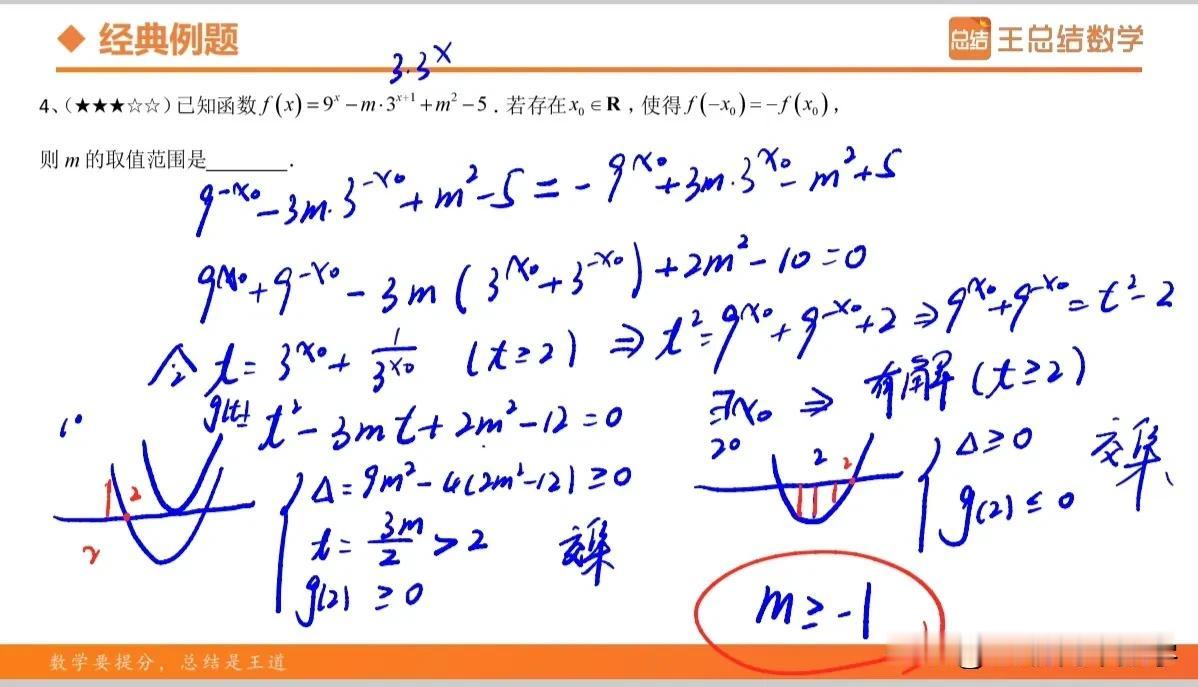 经典例题
总结 王总结数学
3·3^x
4、(★★★☆☆)已知函数f(x)=9^x−m·3^{x+1}+m²−5.若存在x₀∈R,使得f(−x₀)=−f(x₀),
则m的取值范围是______.
9^{-x₀}−3m·3^{-x₀}+m²−5=−9^{x₀}+3m·3^{x₀}−m²+5
9^{x₀}+9^{-x₀}−3m(3^{x₀}+3^{-x₀})+2m²−10=0
令 t=3^{x₀}+1/3^{x₀} (t≥2) ⇒ t²=9^{x₀}+9^{-x₀}+2 ⇒ 9^{x₀}+9^{-x₀}=t²−2
g(t)= t²−3mt+2m²−12=0 ∃x₀ ⇒ 有解(t≥2)
1° 2
Δ=9m²−4(2m²−12)≥0
t=3m/2>2 交集
g(2)≥0
2
2° 2 2
Δ≥0
g(2)≤0 交集
m≥−1
数学要提分，总结是王道